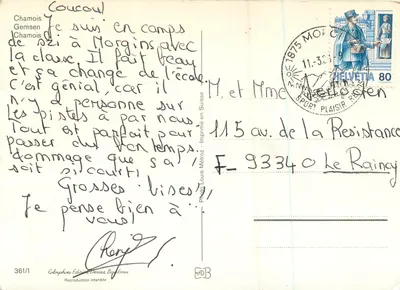 Chamois
Gemsen
Chamois
Coucou!
Je suis en camps
de ski à Morgins avec
la classe. Il fait beau
et ça change de l'école.
C'est génial, car il
n'y a personne sur
les pistes à par nous.
Tout est parfait pour
passer du bon temps.
dommage que ça
soit si court!
Grosses bises!!
Je pense bien à
vous!
361/1
Reproduction interdite
1875 MO
SPORT PLAISIR
HELVETIA 80
M. et Mme
115 av. de la Resistance
F_ 93340 Le Raincy